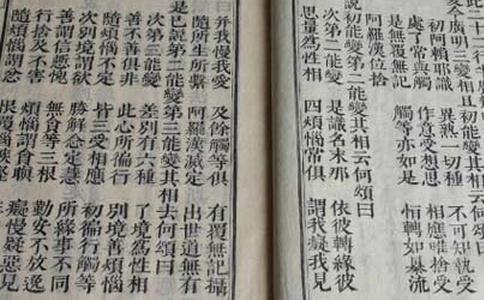 此二十二行
次廣明三變相且初能變其相云何頌曰
初阿賴耶識 異熟一切種 不可知執受
處了常與觸 作意受想思 相應唯捨受
是無覆無記 觸等亦如是 恒轉如暴流
阿羅漢位捨
初能變第二能變其相云何頌曰
次第二能變 是識名末那 依彼轉緣彼
思量為性相 四煩惱常俱 謂我癡我見
并我慢我愛 及餘觸等俱 有覆無記攝
隨所生所繫 阿羅漢滅定 出世道無有
是已說第二能變第三能變其相云何頌曰
次第三能變 差別有六種 了境為性相
善不善俱非 此心所徧行 別境善煩惱
隨煩惱不定 皆三受相應 初徧行觸等
次別境謂欲 勝解念定慧 所緣事不同
善謂信慚愧 無貪等三根 勤安不放逸
行捨及不害 煩惱謂貪瞋 癡慢疑惡見
隨煩惱謂忿 恨覆惱嫉慳